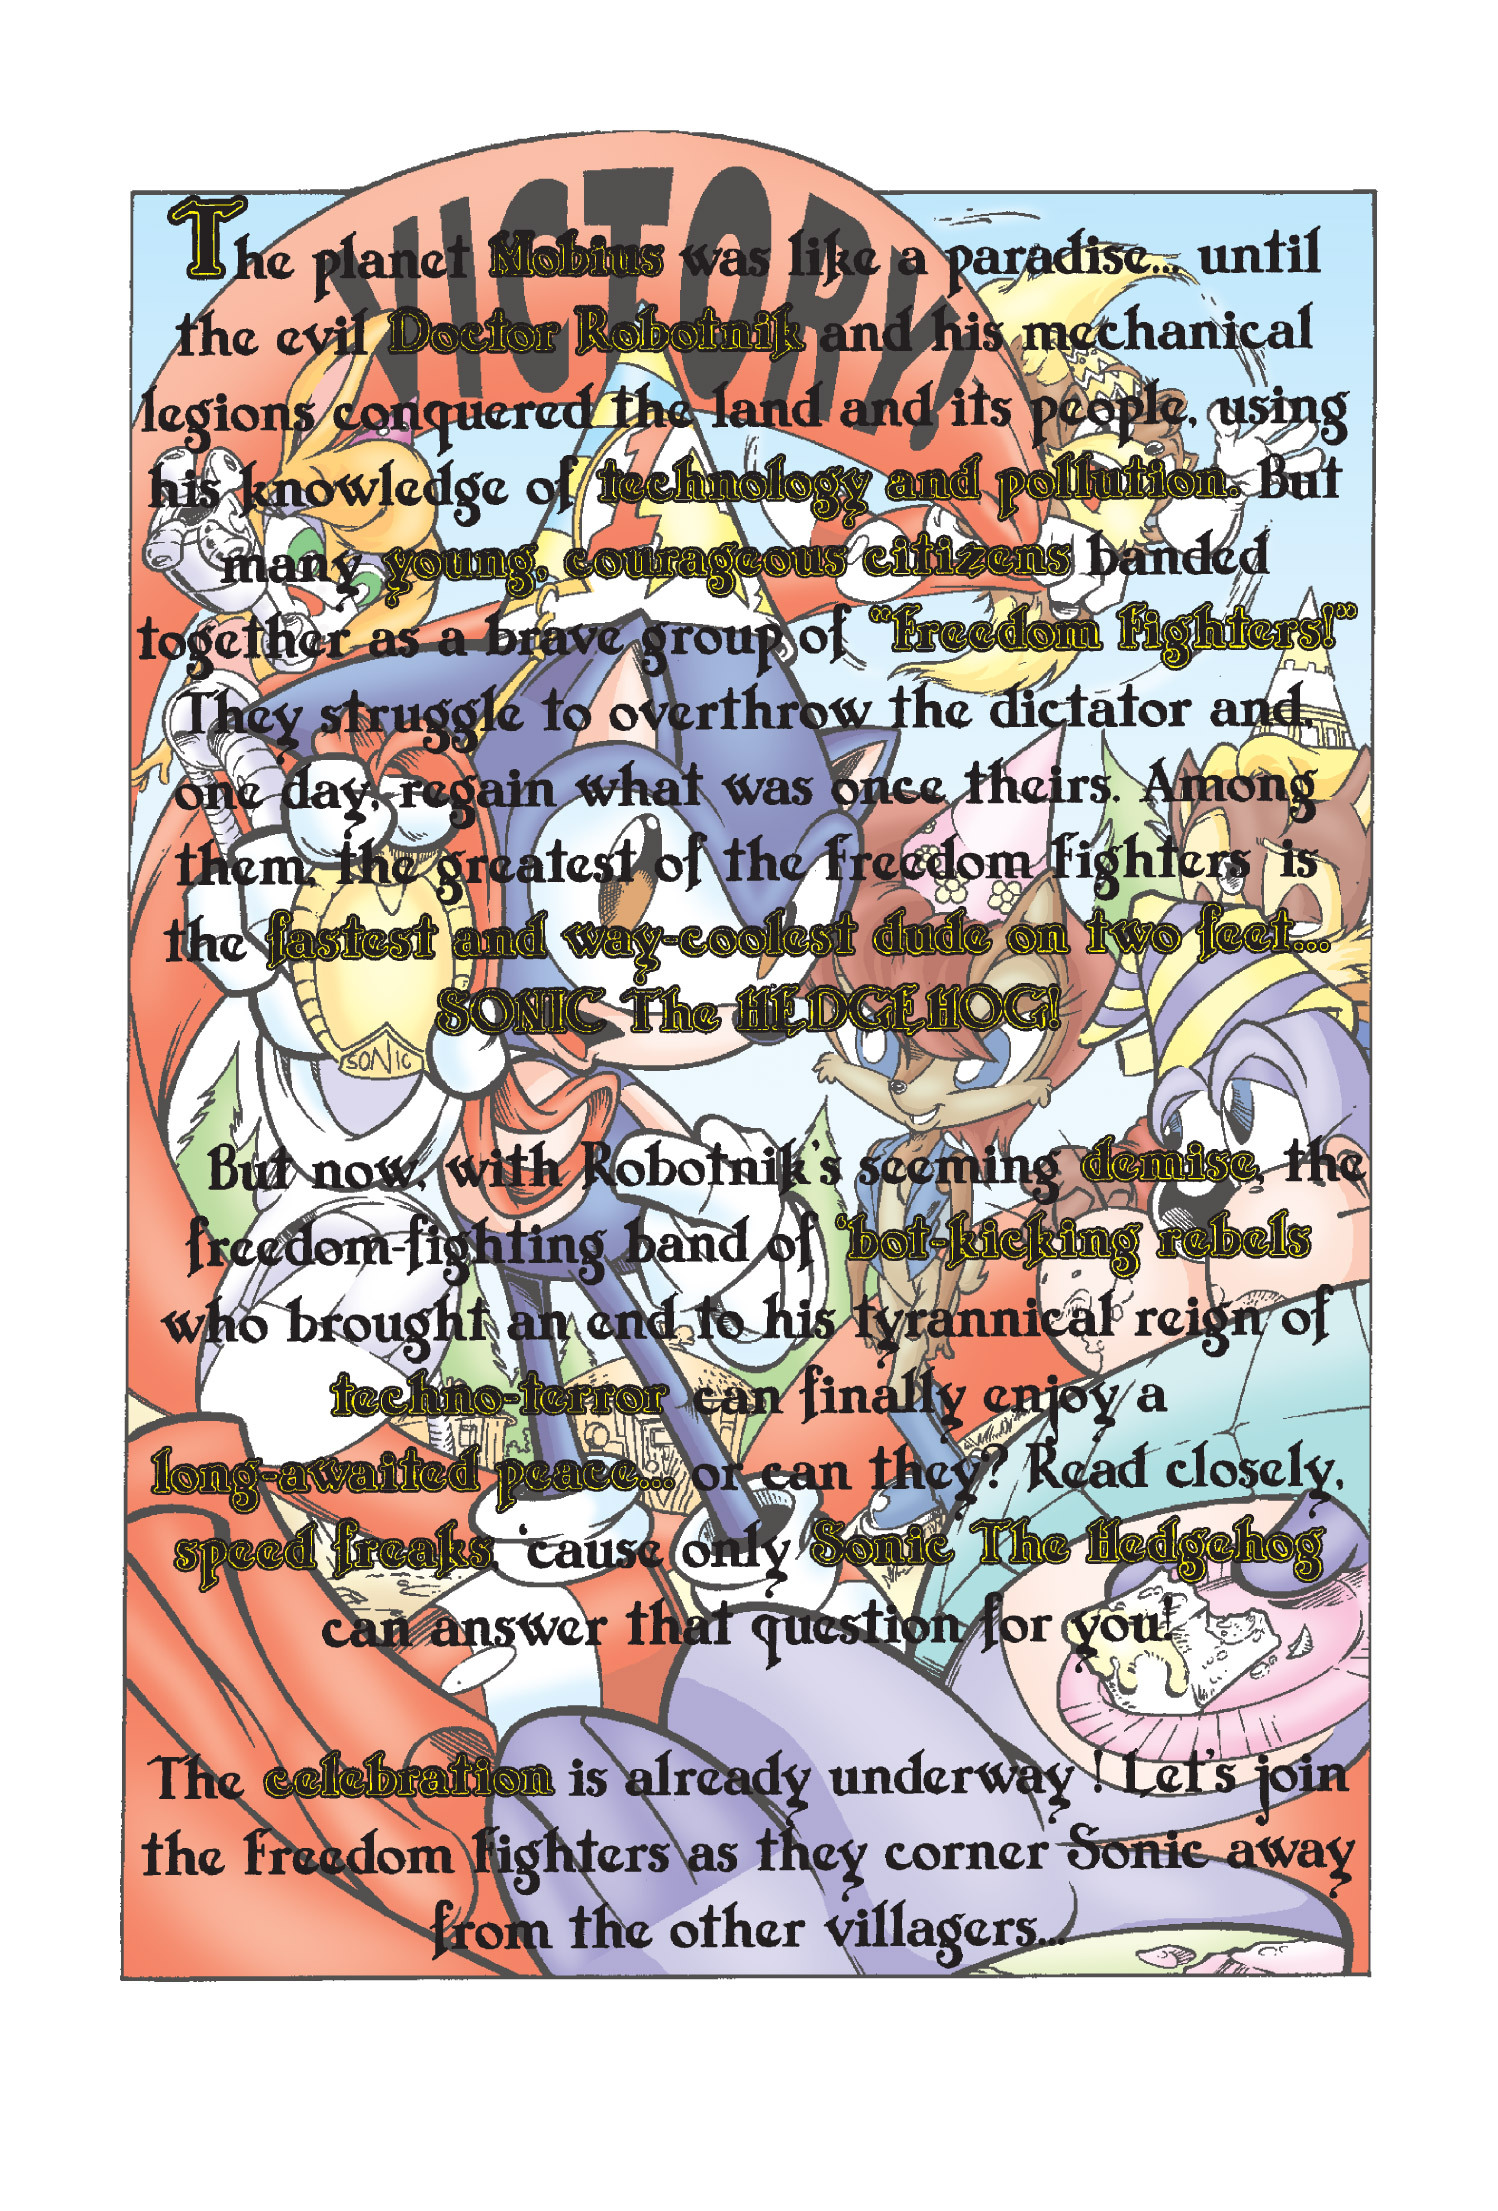 VICTORY
The planet Mobius was like a paradise... until
the evil Doctor Robotnik and his mechanical
legions conquered the land and its people, using
his knowledge of technology and pollution. But
many young, courageous citizens banded
together as a brave group of "Freedom Fighters!"
They struggle to overthrow the dictator and,
one day, regain what was once theirs. Among
them, the greatest of the Freedom Fighters is
the fastest and way-coolest dude on two feet...
SONIC The HEDGEHOG!
SONIC
But now, with Robotnik's seeming demise, the
freedom-fighting band of 'bot-kicking rebels
who brought an end to his tyrannical reign of
techno-terror can finally enjoy a
long-awaited peace... or can they? Read closely,
speed freaks, 'cause only Sonic The Hedgehog
can answer that question for you!
The celebration is already underway ! Let's join
the Freedom Fighters as they corner Sonic away
from the other villagers...
1